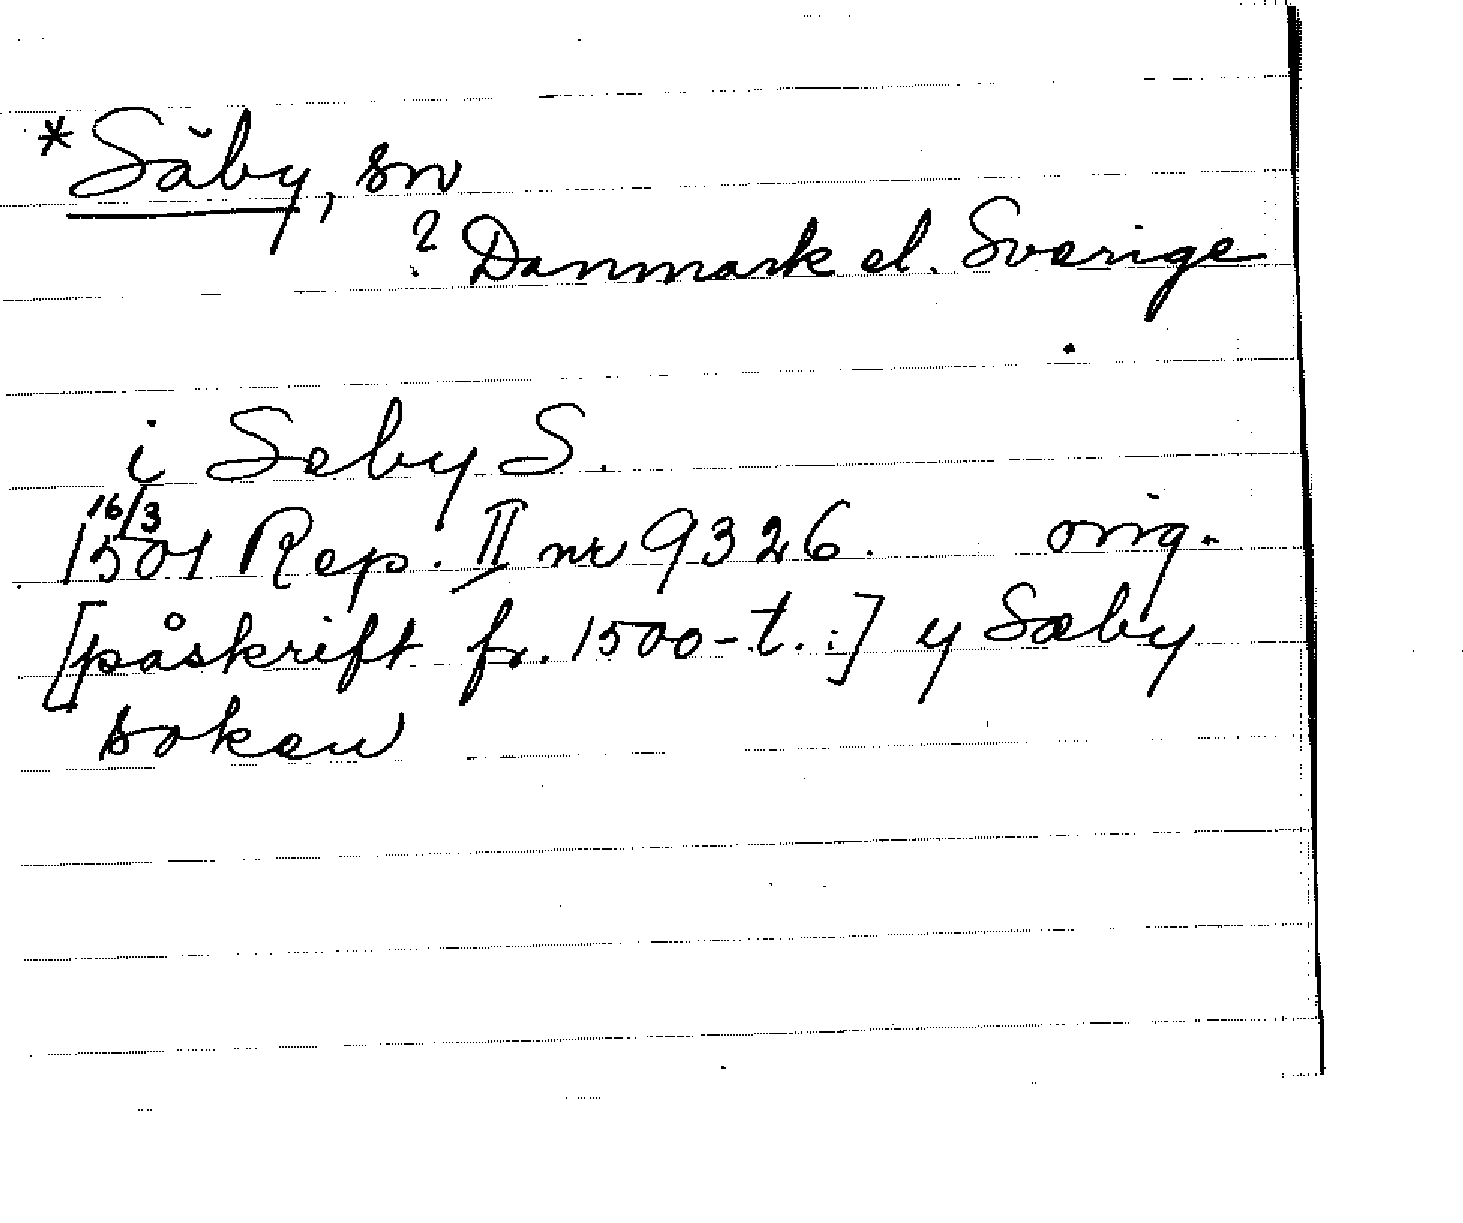 *Säby, sn
? Danmark el. Sverige
i Seby S.
16/3
1501 Rep. II nr 9326. orig.
[påskrift fr. 1500-t.:] y Sæby
soken